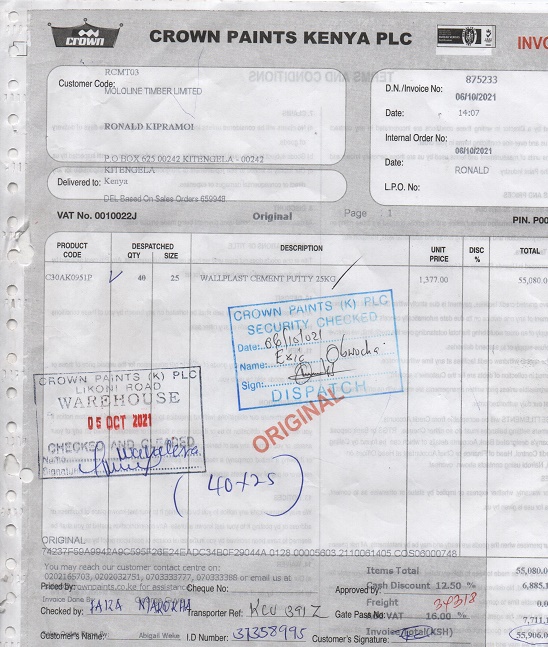 crown
CROWN PAINTS KENYA PLC
INVO
RCMT03
Customer Code:
MOLOLINE TIMBER LIMITED
RONALD KIPRAMOI
P.O BOX 625 00242 KITENGELA - 00242
KITENGELA
Delivered to: Kenya
DEL Based On Sales Orders 659948
875233
D.N./Invoice No:
06/10/2021
Date: 14:07
Internal Order No:
06/10/2021
Date:
RONALD
L.P.O. No:
VAT No. 0010022J Original Page : 1 PIN. P00
PRODUCT CODE DESPATCHED QTY SIZE DESCRIPTION UNIT PRICE DISC % TOTAL
C30AK0951P 40 25 WALLPLAST CEMENT PUTTY 25KG 1,377.00 55,080.0
CROWN PAINTS (K) PLC
SECURITY CHECKED
Date: 06/10/2021
Name: Eric
Sign:
DISPATCH
CROWN PAINTS (K) PLC
LIKONI ROAD
WAREHOUSE
05 OCT 2021
CHECKED AND CLEARED
Name
Signature
ORIGINAL
(40x25)
ORIGINAL
You may reach our customer contact centre on:
0202165703, 0202032751, 0703333777, 070333388 or email us at
Priced by: crownpaints.co.ke for assistance Cheque No: Approved by:
Invoice Done By
Checked by: Transporter Ref: KCU 391Z Gate Pass No:
Customer's Name: Abigail Weke I.D Number: 37358995 Customer's Signature:
Items Total 55,080.0
Cash Discount 12.50 % 6,885.1
Freight 0.0
VAT 16.00 % 7,711.
Invoice total(KSH) 55,906.0